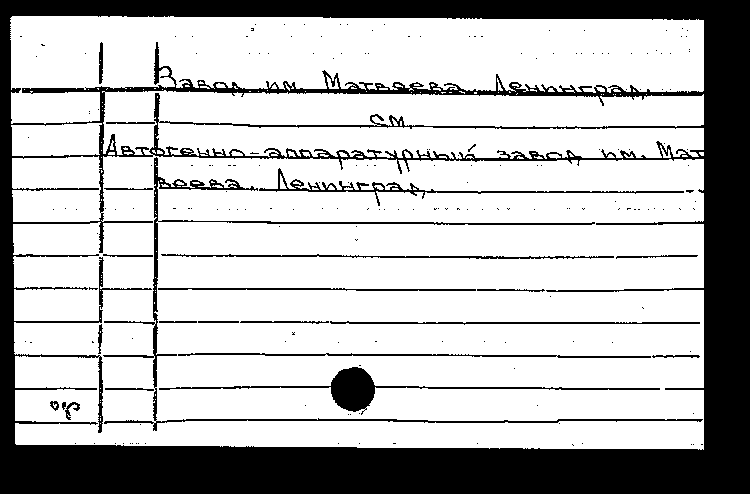 Завод им. Матвеева. Ленинград.
см.
Автогенно-аппаратурный завод им. Мат
веева. Ленинград.